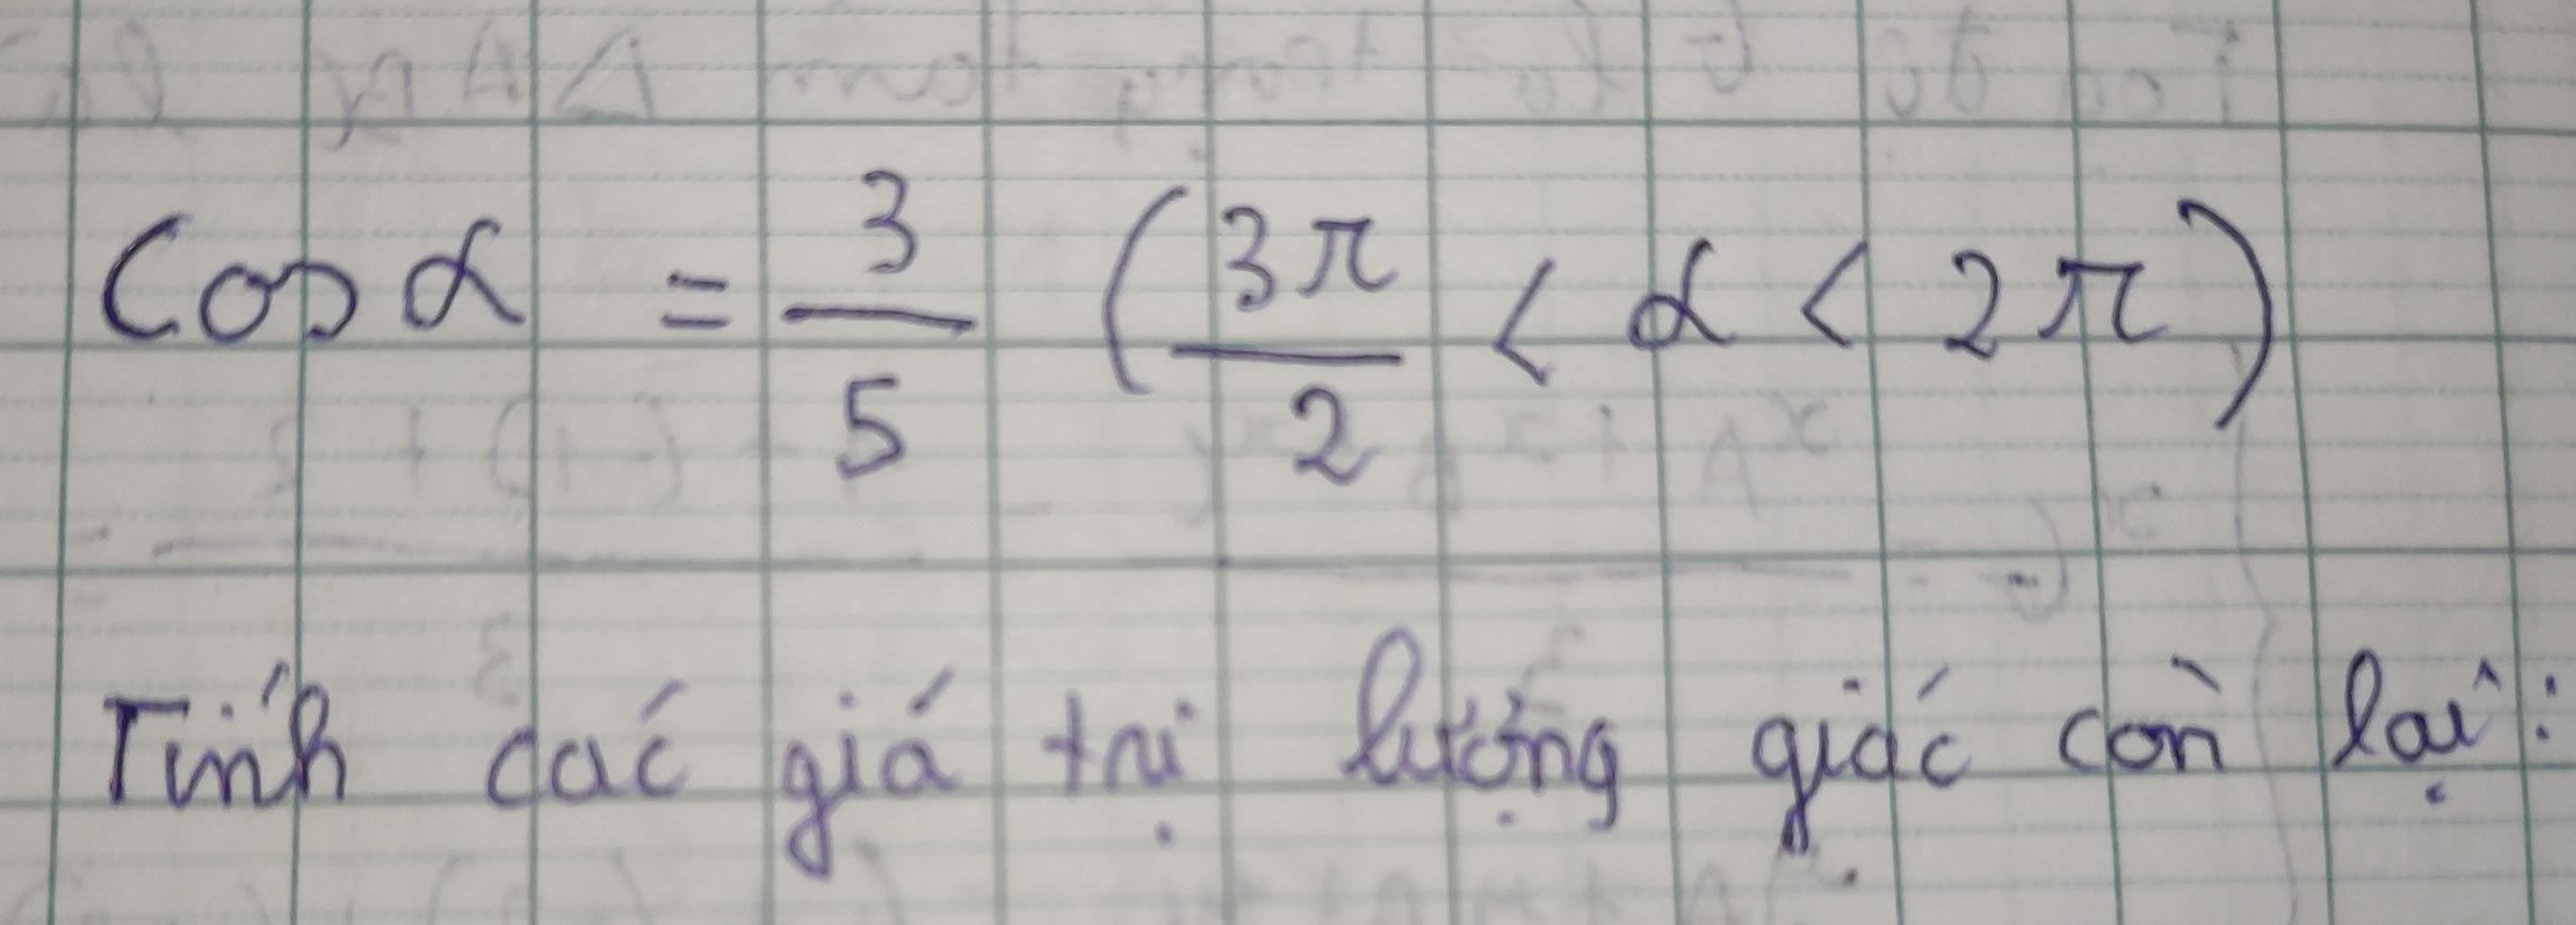 Cos α = 3/5 (3π/2 < α < 2π)
Tính các giá trị lượng giác còn lại: